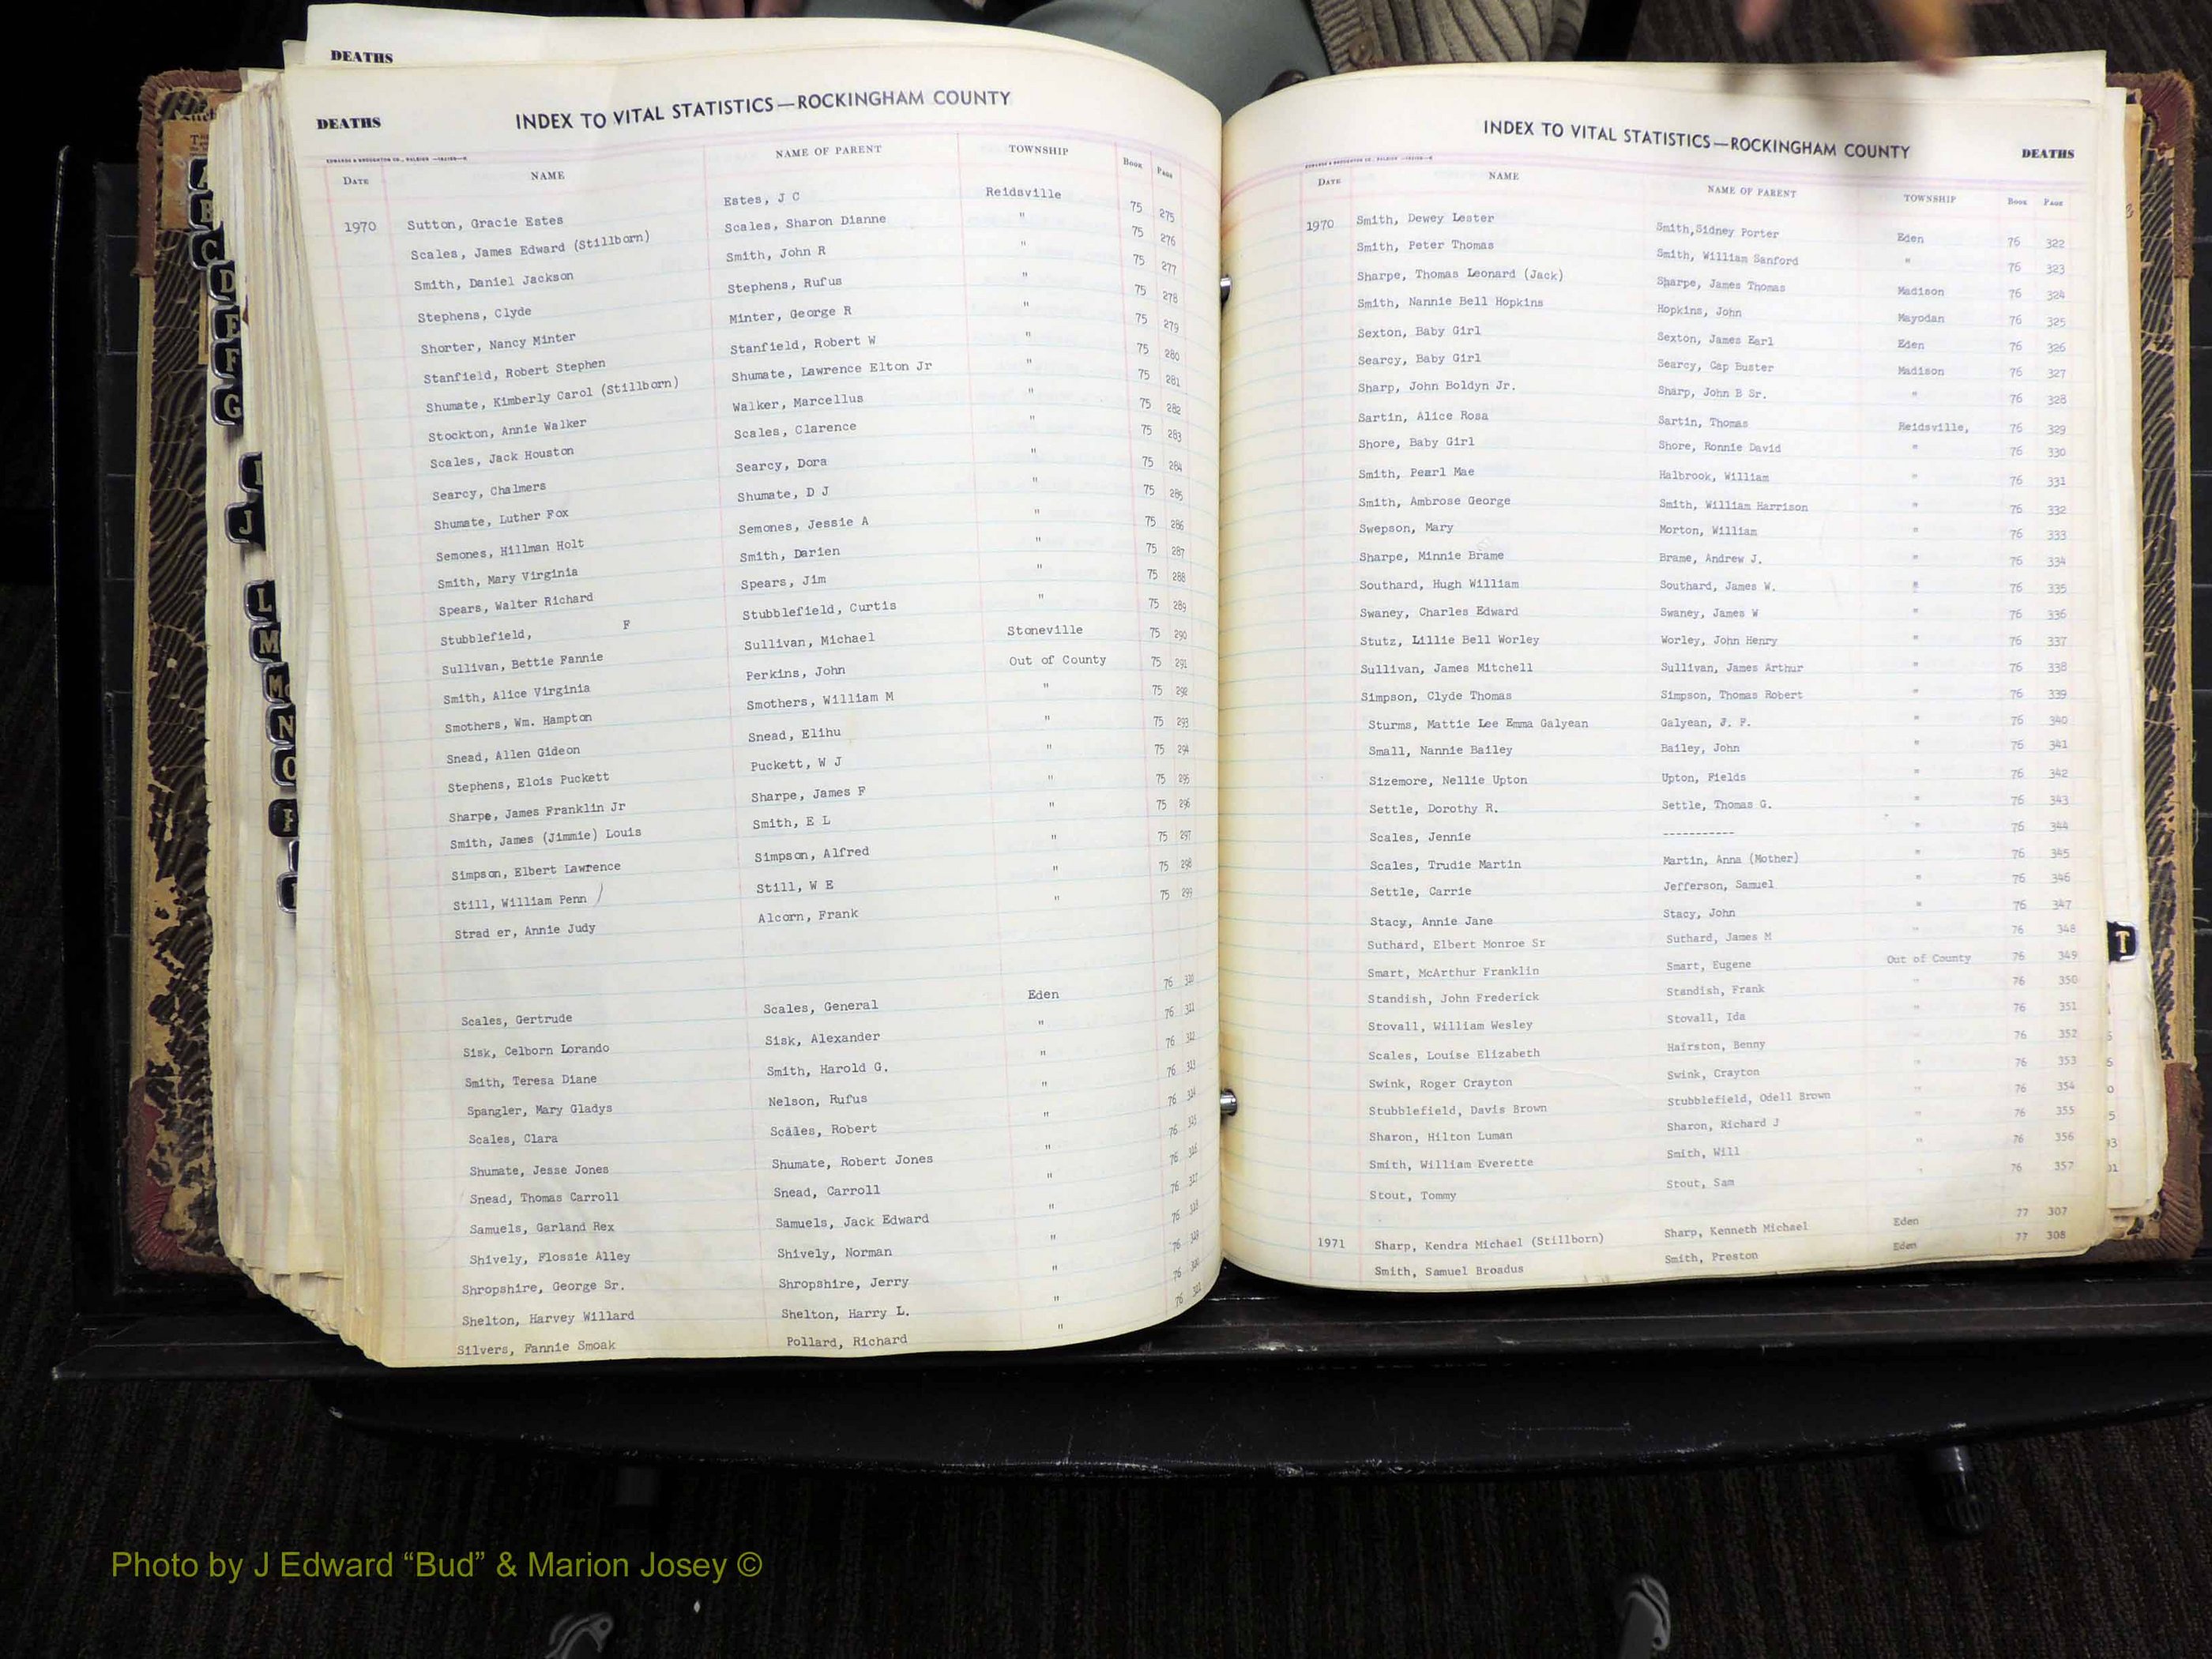 DEATHS
DEATHS
INDEX TO VITAL STATISTICS—ROCKINGHAM COUNTY
DATE NAME NAME OF PARENT TOWNSHIP BOOK PAGE
1970 Sutton, Gracie Estes Estes, J C Reidsville 75 275
Scales, James Edward (Stillborn) Scales, Sharon Dianne " 75 276
Smith, Daniel Jackson Smith, John R " 75 277
Stephens, Clyde Stephens, Rufus " 75 278
Shorter, Nancy Minter Minter, George R " 75 279
Stanfield, Robert Stephen Stanfield, Robert W " 75 280
Shumate, Kimberly Carol (Stillborn) Shumate, Lawrence Elton Jr " 75 281
Stockton, Annie Walker Walker, Marcellus " 75 282
Scales, Jack Houston Scales, Clarence " 75 283
Searcy, Chalmers Searcy, Dora " 75 284
Shumate, Luther Fox Shumate, D J " 75 285
Semones, Hillman Holt Semones, Jessie A " 75 286
Smith, Mary Virginia Smith, Darien " 75 287
Spears, Walter Richard Spears, Jim " 75 288
Stubblefield, F Stubblefield, Curtis " 75 289
Sullivan, Bettie Fannie Sullivan, Michael Stoneville 75 290
Smith, Alice Virginia Perkins, John Out of County 75 291
Smothers, Wm. Hampton Smothers, William M " 75 292
Snead, Allen Gideon Snead, Elihu " 75 293
Stephens, Elois Puckett Puckett, W J " 75 294
Sharpe, James Franklin Jr Sharpe, James F " 75 295
Smith, James (Jimmie) Louis Smith, E L " 75 296
Simpson, Elbert Lawrence Simpson, Alfred " 75 297
Still, William Penn Still, W E " 75 298
Strad er, Annie Judy Alcorn, Frank " 75 299
Scales, Gertrude Scales, General Eden 76
Sisk, Celborn Lorando Sisk, Alexander " 76
Smith, Teresa Diane Smith, Harold G. " 76
Spangler, Mary Gladys Nelson, Rufus " 76
Scales, Clara Scales, Robert " 76
Shumate, Jesse Jones Shumate, Robert Jones " 76
Snead, Thomas Carroll Snead, Carroll " 76
Samuels, Garland Rex Samuels, Jack Edward " 76
Shively, Flossie Alley Shively, Norman " 76
Shropshire, George Sr. Shropshire, Jerry " 76
Shelton, Harvey Willard Shelton, Harry L. " 76
Silvers, Fannie Smoak Pollard, Richard " 76
INDEX TO VITAL STATISTICS—ROCKINGHAM COUNTY
DEATHS
DATE NAME NAME OF PARENT TOWNSHIP BOOK PAGE
1970 Smith, Dewey Lester Smith,Sidney Porter Eden 76 322
Smith, Peter Thomas Smith, William Sanford " 76 323
Sharpe, Thomas Leonard (Jack) Sharpe, James Thomas Madison 76 324
Smith, Nannie Bell Hopkins Hopkins, John Mayodan 76 325
Sexton, Baby Girl Sexton, James Earl Eden 76 326
Searcy, Baby Girl Searcy, Cap Buster Madison 76 327
Sharp, John Boldyn Jr. Sharp, John B Sr. " 76 328
Sartin, Alice Rosa Sartin, Thomas Reidsville, 76 329
Shore, Baby Girl Shore, Ronnie David " 76 330
Smith, Pearl Mae Halbrook, William " 76 331
Smith, Ambrose George Smith, William Harrison " 76 332
Swepson, Mary Morton, William " 76 333
Sharpe, Minnie Brame Brame, Andrew J. " 76 334
Southard, Hugh William Southard, James W. " 76 335
Swaney, Charles Edward Swaney, James W " 76 336
Stutz, Lillie Bell Worley Worley, John Henry " 76 337
Sullivan, James Mitchell Sullivan, James Arthur " 76 338
Simpson, Clyde Thomas Simpson, Thomas Robert " 76 339
Sturms, Mattie Lee Emma Galyean Galyean, J. F. " 76 340
Small, Nannie Bailey Bailey, John " 76 341
Sizemore, Nellie Upton Upton, Fields " 76 342
Settle, Dorothy R. Settle, Thomas G. " 76 343
Scales, Jennie ----------- " 76 344
Scales, Trudie Martin Martin, Anna (Mother) " 76 345
Settle, Carrie Jefferson, Samuel " 76 346
Stacy, Annie Jane Stacy, John " 76 347
Suthard, Elbert Monroe Sr Suthard, James M " 76 348
Smart, McArthur Franklin Smart, Eugene Out of County 76 349
Standish, John Frederick Standish, Frank " 76 350
Stovall, William Wesley Stovall, Ida " 76 351
Scales, Louise Elizabeth Hairston, Benny " 76 352
Swink, Roger Crayton Swink, Crayton " 76 353
Stubblefield, Davis Brown Stubblefield, Odell Brown " 76 354
Sharon, Hilton Luman Sharon, Richard J " 76 355
Smith, William Everette Smith, Will " 76 356
Stout, Tommy Stout, Sam " 76 357
1971 Sharp, Kendra Michael (Stillborn) Sharp, Kenneth Michael Eden 77 307
Smith, Samuel Broadus Smith, Preston Eden 77 308
C
D
E
F
G
J
L
M
N
O
T
Photo by J Edward “Bud” & Marion Josey ©